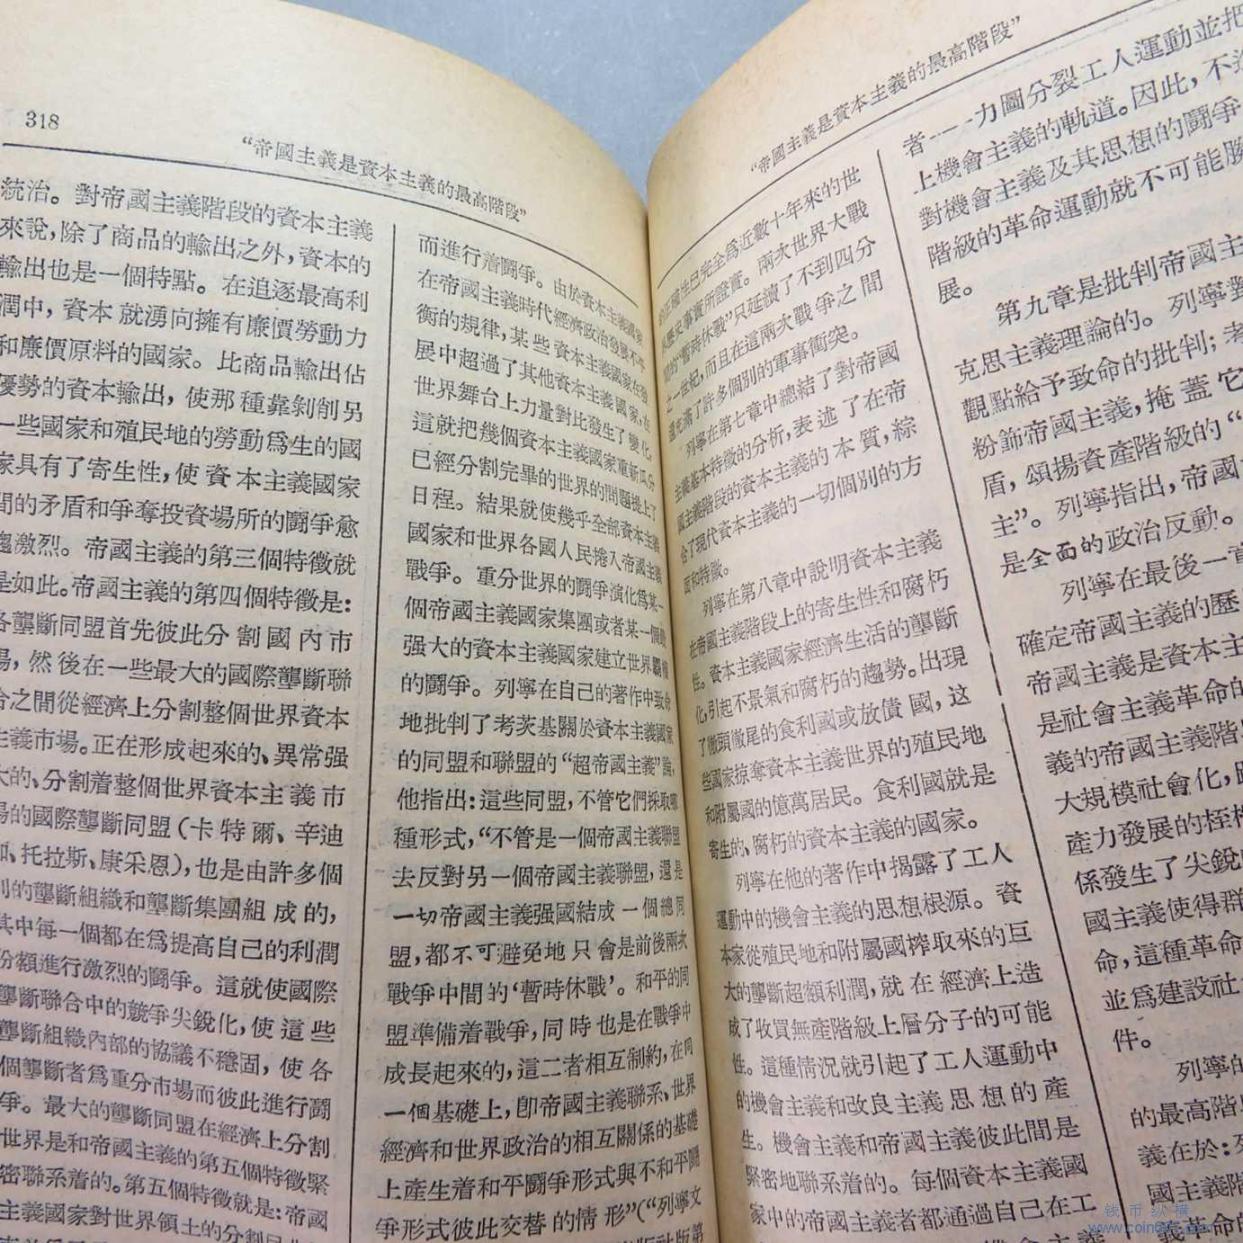 318
“帝國主義是資本主義的最高階段”
統治。對帝國主義階段的資本主義
來說，除了商品的輸出之外，資本的
輸出也是一個特點。在追逐最高利
潤中，資本就湧向擁有廉價勞動力
和廉價原料的國家。比商品輸出佔
優勢的資本輸出，使那種靠剝削另
一些國家和殖民地的勞動爲生的國
家具有了寄生性，使資本主義國家
間的矛盾和爭奪投資場所的鬪爭愈
趨激烈。帝國主義的第三個特徵就
是如此。帝國主義的第四個特徵是：
各壟斷同盟首先彼此分割國內市
場，然後在一些最大的國際壟斷聯
合之間從經濟上分割整個世界資本
主義市場。正在形成起來的、異常强
大的、分割着整個世界資本主義市
場的國際壟斷同盟（卡特爾、辛迪
加、托拉斯、康采恩），也是由許多個
別的壟斷組織和壟斷集團組成的，
其中每一個都在爲提高自己的利潤
份額進行激烈的鬪爭。這就使國際
壟斷聯合中的競爭尖銳化，使這些
壟斷組織內部的協議不穩固，使各
個壟斷者爲重分市場而彼此進行鬪
爭。最大的壟斷同盟在經濟上分割
世界是和帝國主義的第五個特徵緊
密聯系着的。第五個特徵就是：帝國
主義國家對世界領土的分割
而進行着鬪爭。由於資本主義國家
在帝國主義時代經濟政治發展不平
衡的規律，某些資本主義國家在發
展中超過了其他資本主義國家，在
世界舞台上力量對比發生了變化，
這就把幾個資本主義國家重新瓜分
已經分割完畢的世界的問題提上了
日程。結果就使幾乎全部資本主義
國家和世界各國人民捲入帝國主義
戰爭。重分世界的鬪爭演化爲某一
個帝國主義國家集團或者某一個最
强大的資本主義國家建立世界霸權
的鬪爭。列寧在自己的著作中致命
地批判了考茨基關於資本主義國家
的同盟和聯盟的“超帝國主義”論，
他指出：這些同盟，不管它們採取哪
種形式，“不管是一個帝國主義聯盟
去反對另一個帝國主義聯盟，還是
一切帝國主義强國結成一個總同
盟，都不可避免地只會是前後兩次
戰爭中間的‘暫時休戰’。和平的同
盟準備着戰爭，同時也是在戰爭中
成長起來的，這二者相互制約，在同
一個基礎上，卽帝國主義聯系、世界
經濟和世界政治的相互關係的基礎
上產生着和平鬪爭形式與不和平鬪
爭形式彼此交替的情形”（“列寧文
“帝國主義是資本主義的最高階段”
正確地已完全爲近數十年來的世
歷史事實所證實。兩次世界大戰
間的“暫時休戰”只延續了不到四分
之一世紀，而且在這兩次戰爭之間
還充滿了許多個別的軍事衝突。
列寧在第七章中總結了對帝國
主義基本特徵的分析，表述了在帝
國主義階段的資本主義的本質，綜
合了現代資本主義的一切個別的方
面和特徵。
列寧在第八章中說明資本主義
在帝國主義階段上的寄生性和腐朽
性。資本主義國家經濟生活的壟斷
化，引起不景氣和腐朽的趨勢。出現
了徹頭徹尾的食利國或放債國，这
些國家掠奪資本主義世界的殖民地
和附屬國的億萬居民。食利國就是
寄生的、腐朽的資本主義的國家。
列寧在他的著作中揭露了工人
運動中的機會主義的思想根源。資
本家從殖民地和附屬國榨取來的巨
大的壟斷超額利潤，就在經濟上造
成了收買無產階級上層分子的可能
性。這種情况就引起了工人運動中
的機會主義和改良主義思想的產
生。機會主義和帝國主義彼此間是
緊密地聯系着的。每個資本主義國
家中的帝國主義者都通過自己在工
者——力圖分裂工人運動並把
上機會主義的軌道。因此，不
對機會主義及其思想的鬪爭
階級的革命運動就不可能勝
展。
第九章是批判帝國主
克思主義理論的。列寧對
觀點給予致命的批判；考
粉飾帝國主義，掩蓋它
盾，頌揚資產階級的“
主”。列寧指出，帝國
是全面的政治反動。
列寧在最後一章
確定帝國主義的歷
帝國主義是資本主
是社會主義革命的
義的帝國主義階
大規模社會化，
產力發展的桎梏
係發生了尖銳
國主義使得群
命，這種革命
並爲建設社
件。
列寧的
的最高階
義在於：
國主義
義革命的
钱币纵横